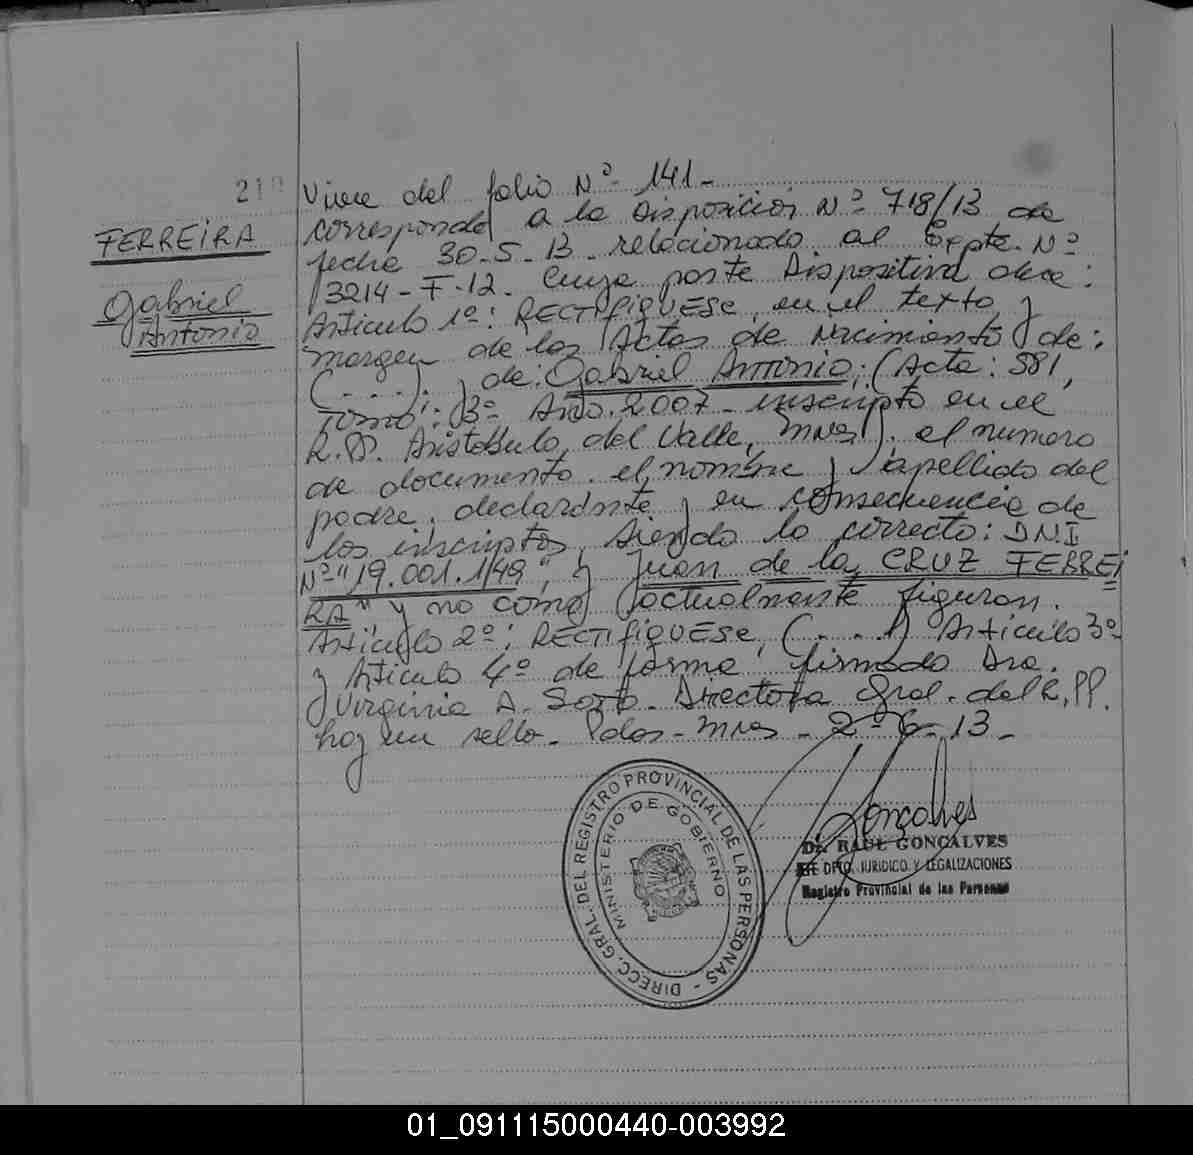 21
FERREIRA
Gabriel
Antonio
Viene del folio Nº 141-
corresponde a la Disposicion Nº 718/13 de
fecha 30-5-13- relacionado al Expte. Nº
3214-F-12- Cuya parte Dispositiva dice:
Articulo 1º: RECTIFIQUESE, en el texto y
margen de las Actas de Nacimiento de:
(....). y de: Gabriel Antonio; (Acta: 381,
Tomo: 3º Año. 2007- inscripto en el
R.P. Aristobulo del Valle, Mnes). el numero
de documento. el nombre y apellido del
padre, declarante y en consecuencia de
los inscriptos, siendo lo correcto: DNI
Nº "19.001.149", y Juan de la CRUZ FERREI
RA" y no como actualmente figuran.
Articulo 2º: RECTIFIQUESE, (....) Articulo 3º
y Articulo 4º de forma, firmado Dra.
Virginia A. Soto- Directora Gral. del R.PP.
hay un sello- Pdas- Mnes- 2-6-13-
DIRECC. GRAL. DEL REGISTRO PROVINCIAL DE LAS PERSONAS -
MINISTERIO DE GOBIERNO
Gonçalves
Dr. RAUL GONÇALVES
JEFE DPTO. JURIDICO Y LEGALIZACIONES
Registro Provincial de las Personas
01_091115000440-003992